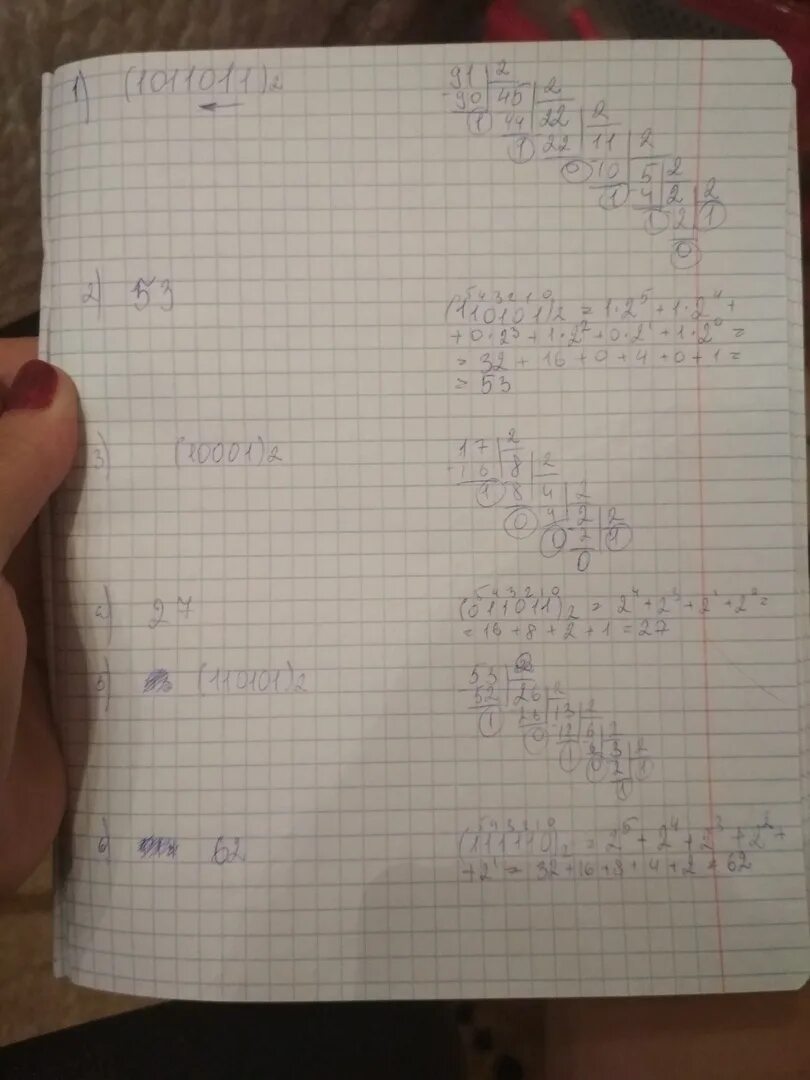 1) (1011011)2
91 2
-90 45 2
1 44 22 2
1 22 11 2
0 10 5 2
1 4 2 2
1 2 1
0
2) 53
5 4 3 2 1 0
(110101)2 = 1·2^5 + 1·2^4 +
+ 0·2^3 + 1·2^2 + 0·2^1 + 1·2^0 =
= 32 + 16 + 0 + 4 + 0 + 1 =
= 53
3) (10001)2
17 2
-16 8 2
1 8 4 2
0 4 2 2
0 2 1
0
4) 27
5 4 3 2 1 0
(011011)2 = 2^4 + 2^3 + 2^1 + 2^0 =
= 16 + 8 + 2 + 1 = 27
5) (110101)2
53 2
52 26 2
1 26 13 2
0 12 6 2
1 6 3 2
0 2 1
1
6) 62
5 4 3 2 1 0
(111110)2 = 2^5 + 2^4 + 2^3 + 2^2 +
+ 2^1 = 32 + 16 + 8 + 4 + 2 = 62